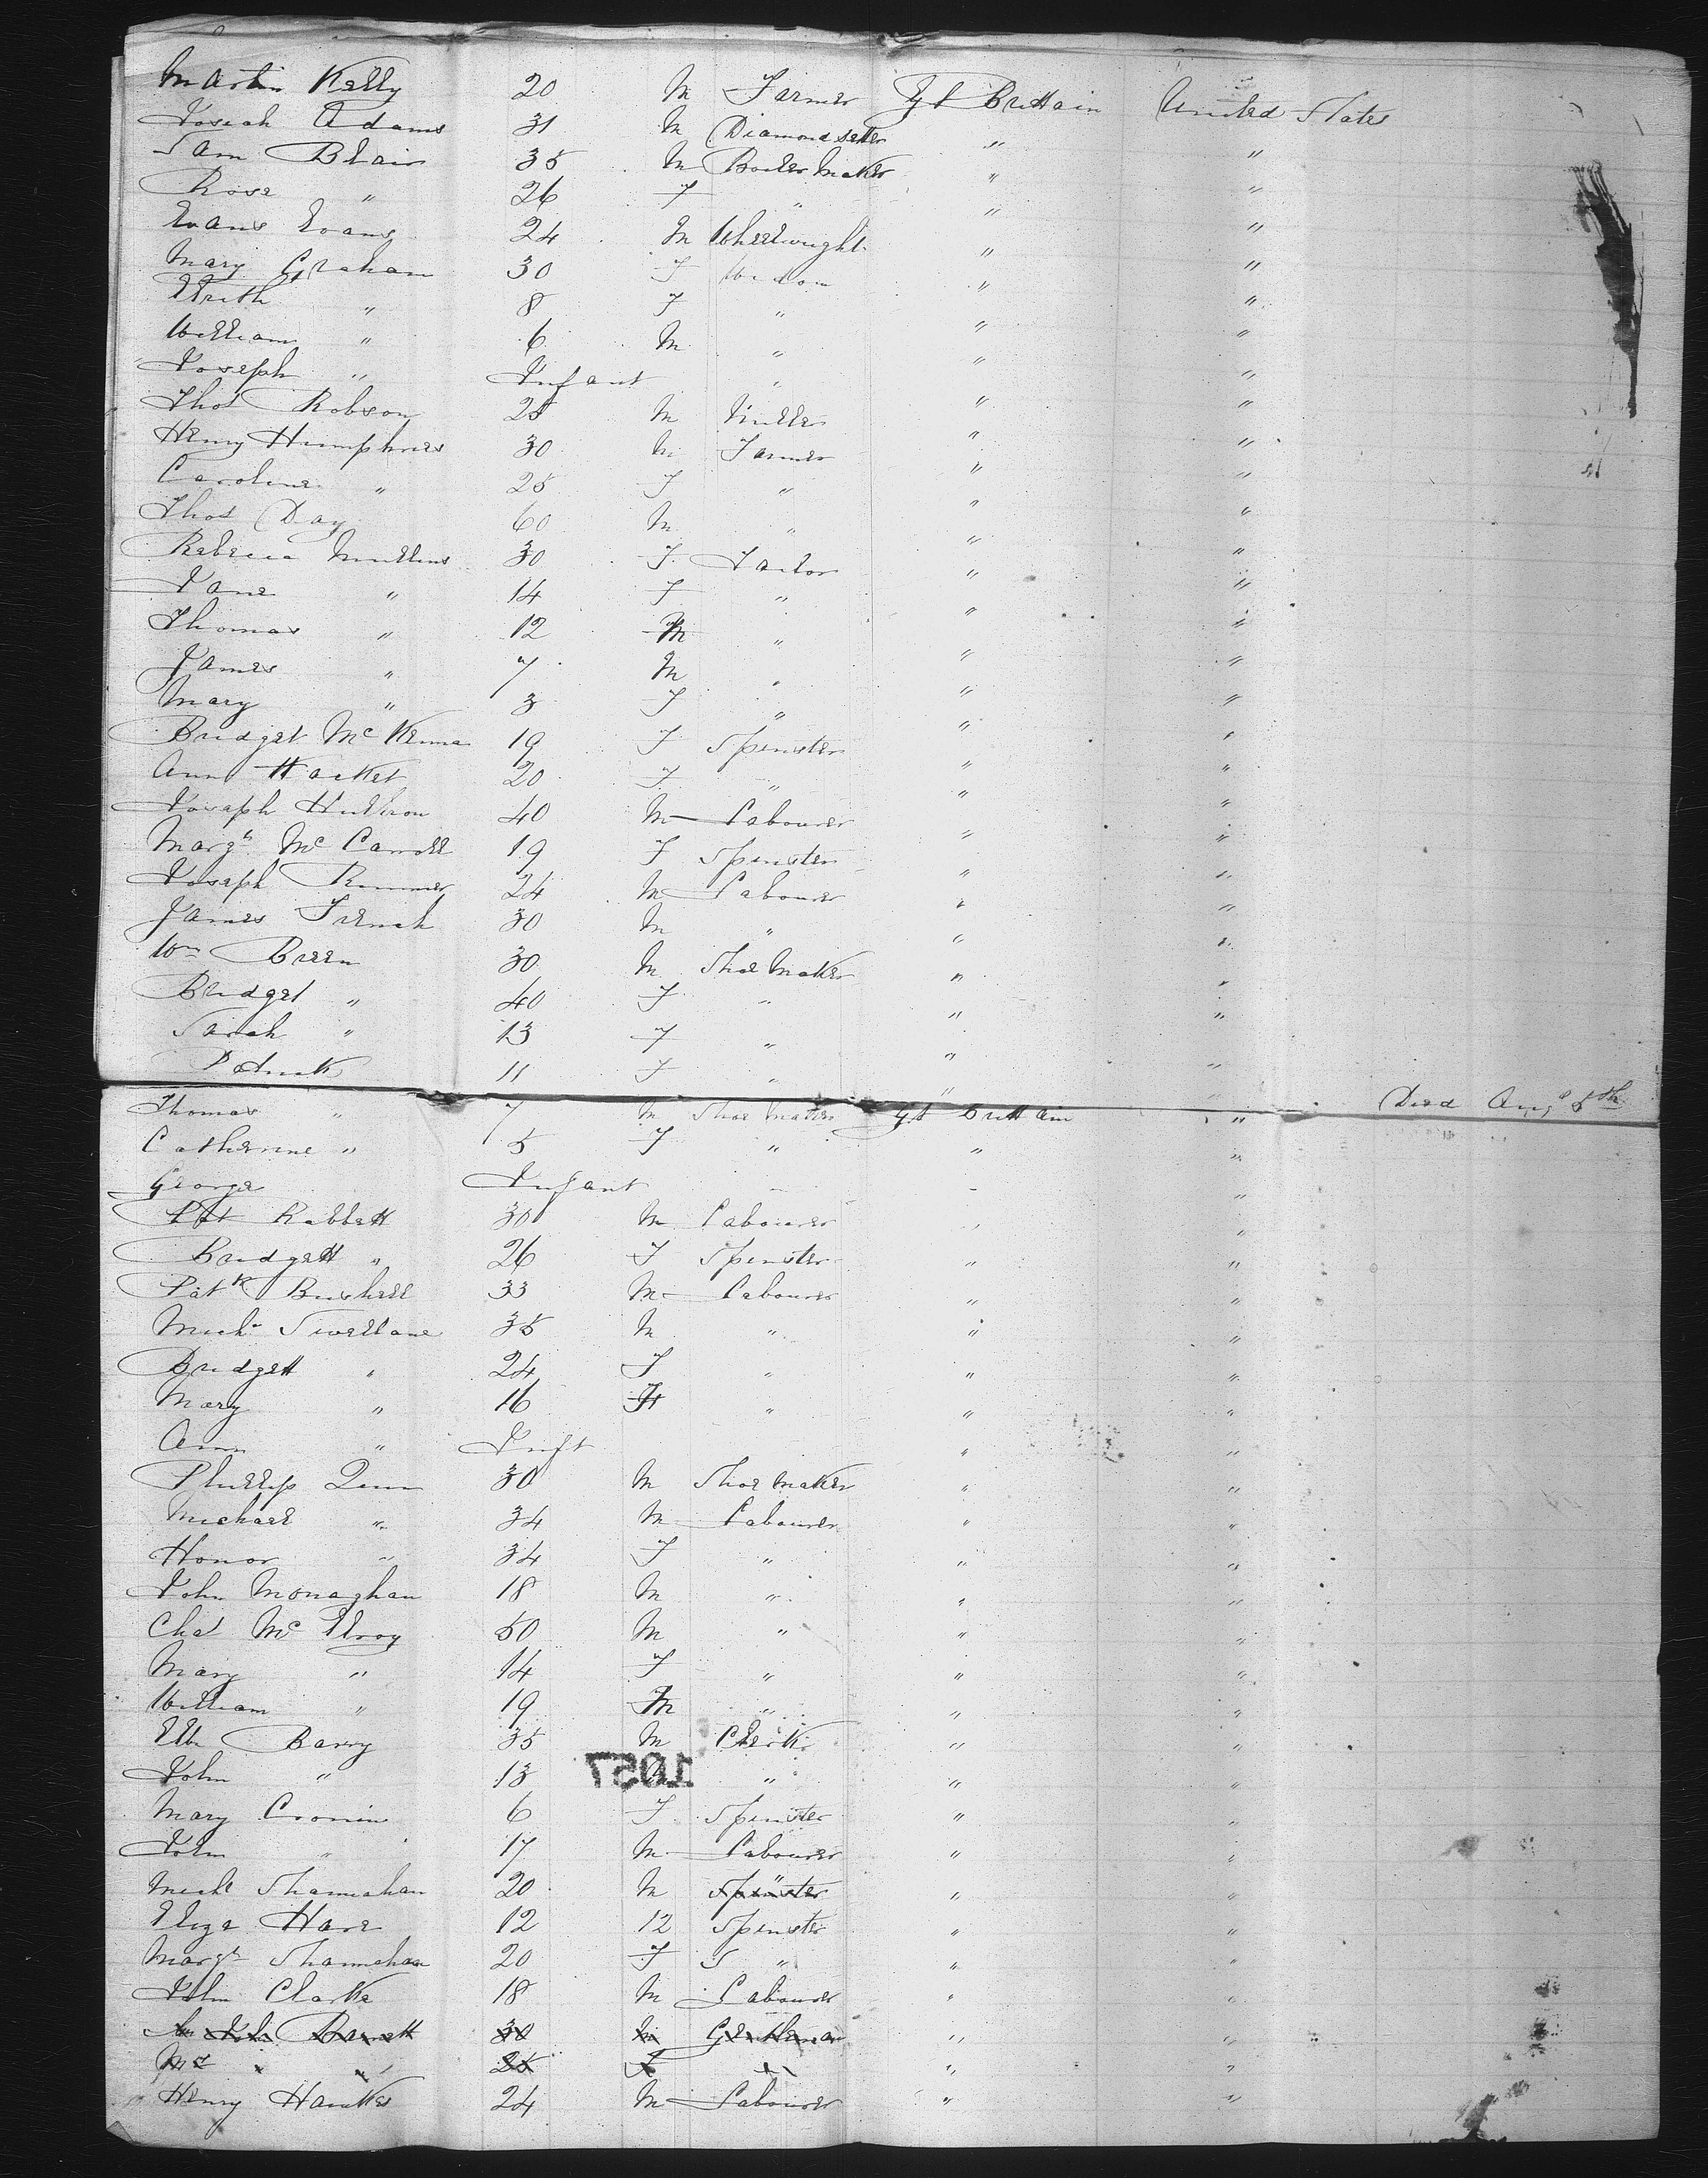 Martin Kelly 20 M Farmer Gt Brittain United States
Josiah Adams 31 M Diamond setter " "
Sam Blair 35 M Boiler Maker " "
Rose " 26 F " " "
Evans Evans 24 M Wheelwright " "
Mary Graham 30 F Widow " "
" 8 F " " "
William " 6 M " " "
Joseph " Infant " " "
Thos Robson 25 M Miller " "
Henry Humphries 30 M Farmer " "
Caroline " 25 F " " "
Thos Day 60 M " " "
Rebecca Mullins 30 F Tailor " "
Jane " 14 F " " "
Thomas " 12 M " " "
James " 7 M " " "
Mary " 3 F " " "
Bridget McKenna 19 F Spinster " "
Ann Hacket 20 F " " "
Joseph 40 M Labourer " "
Margt McCarroll 19 F Spinster " "
Joseph Rimmer 24 M Labourer " "
James French 30 M " " "
Wm Breen 30 M Shoe Maker " "
Bridget " 40 F " " "
Sarah " 13 F " " "
Patrick 11 F " " "
Thomas " 7 M Shoe Maker Gt Brittain " Died Aug 5th
Catherine " 5 F " " "
George Infant " " "
Pat Rabbett 30 M Labourer " "
Bridgett " 26 F Spinster " "
Patk Bushell 33 M Labourer " "
Michl Swellane 35 M " " "
Bridgett " 24 F " " "
Mary " 16 F " " "
Ann " Inft " "
Phillip Quinn 30 M Shoe Maker " "
Michael " 34 M Labourer " "
Honor " 34 F " " "
John Monaghan 18 M " " "
Chas McElroy 50 M " " "
Mary " 14 F " " "
William " 19 M " " "
Barry 35 M Clerk " "
John " 13 1057 " " "
Mary Cronin 6 F Spinster " "
John " 17 M Labourer " "
Michl Shannahan 20 M Spinster " "
Eliza Hare 12 12 Spinster " "
Margt Shannahan 20 F S " " "
John Clarke 18 M Labourer " "
John Barnett 30 M Gentleman " "
Mrs " " 25 F " " "
Henry Hawkes 24 M Labourer " "